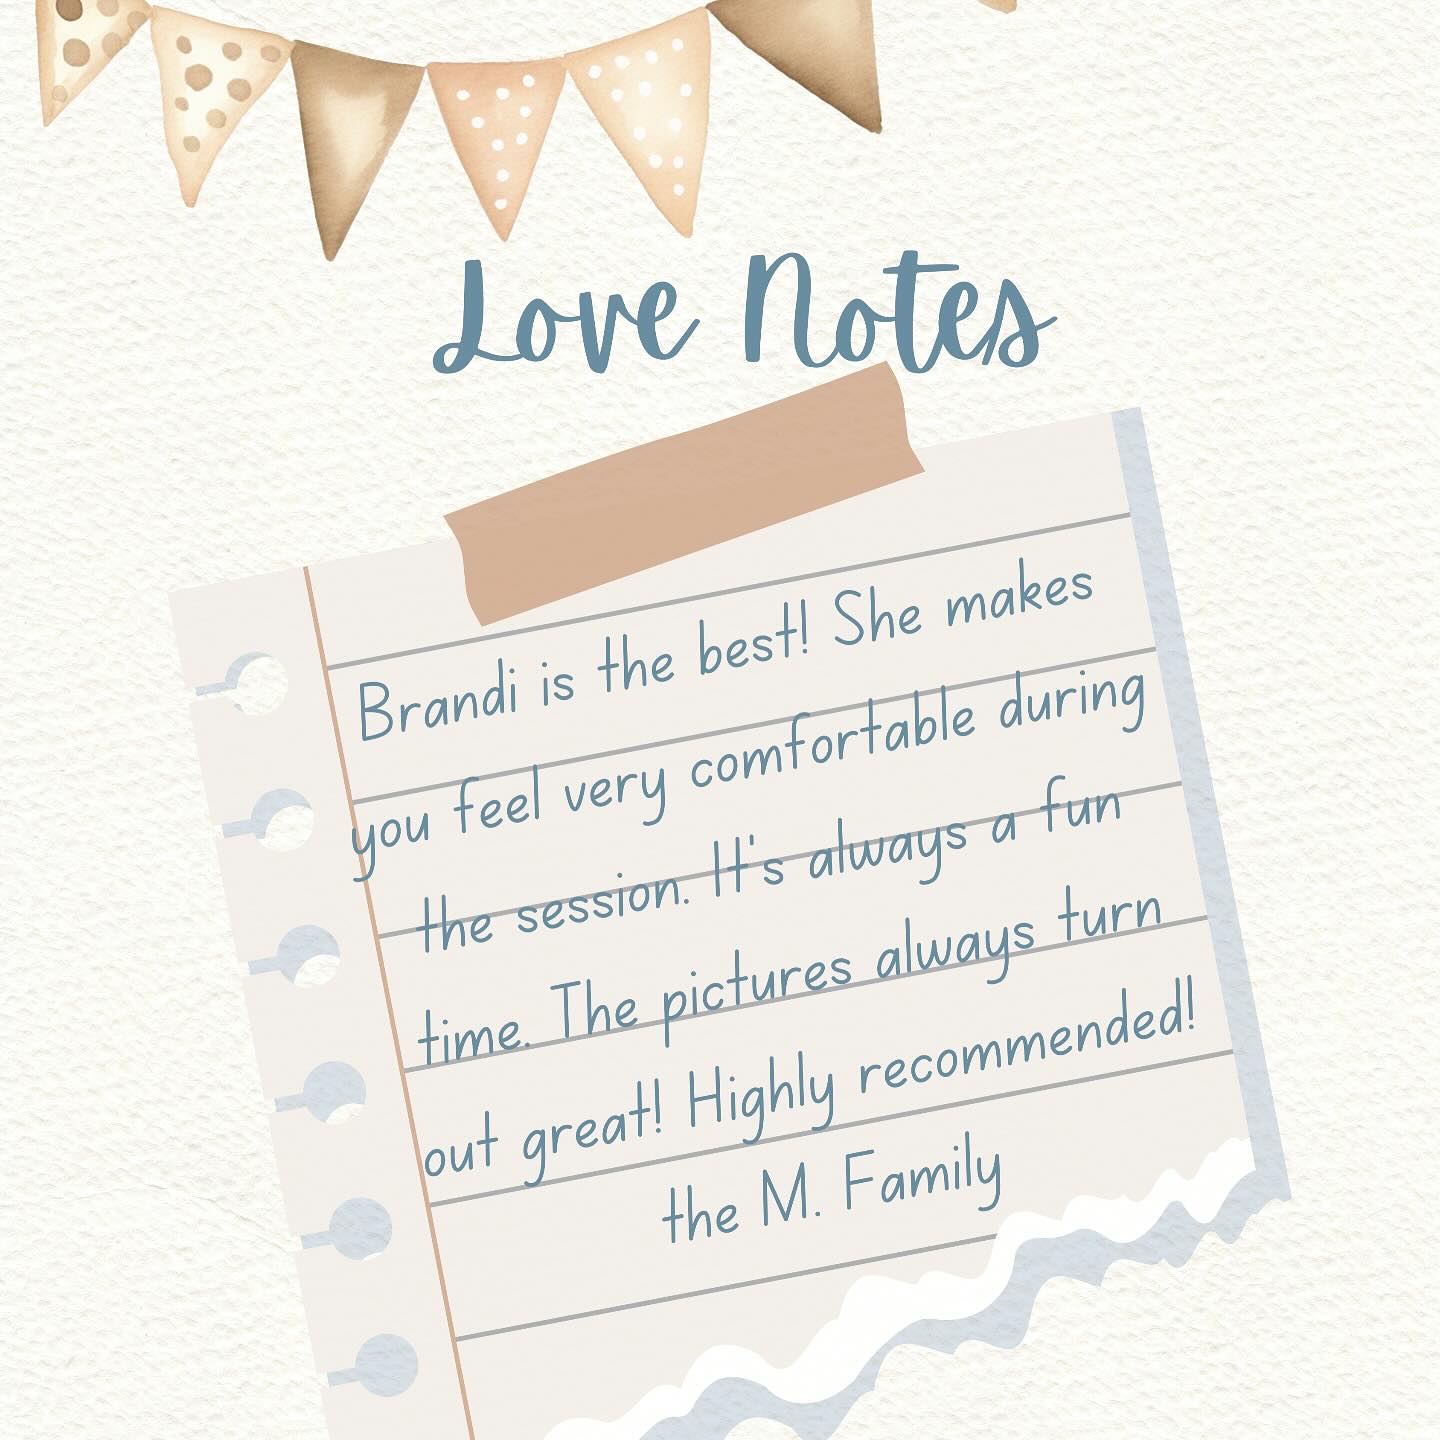 Love Notes
Brandi is the best! She makes
you feel very comfortable during
the session. It's always a fun
time. The pictures always turn
out great! Highly recommended!
the M. Family